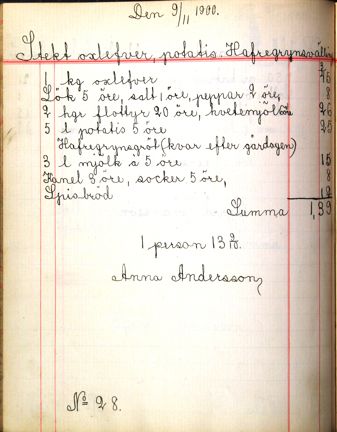 Den 9/11 1900.
Stekt oxlefver, potatis. Hafregrynsvälling
1 kg oxlefver 75
Lök 5 öre, salt 1 öre, peppar 2 öre, 8
2 hgr flottyr 20 öre, hvetemjöl 6 öre 26
5 l potatis 5 öre 25
Hafregrynsgröt (kvar efter gårdagen)
3 l mjölk à 5 öre 15
Kanel 3 öre, socker 5 öre, 8
Spisbröd 12
Summa 1,39
1 person 13 9/10.
Anna Andersson
No 28.